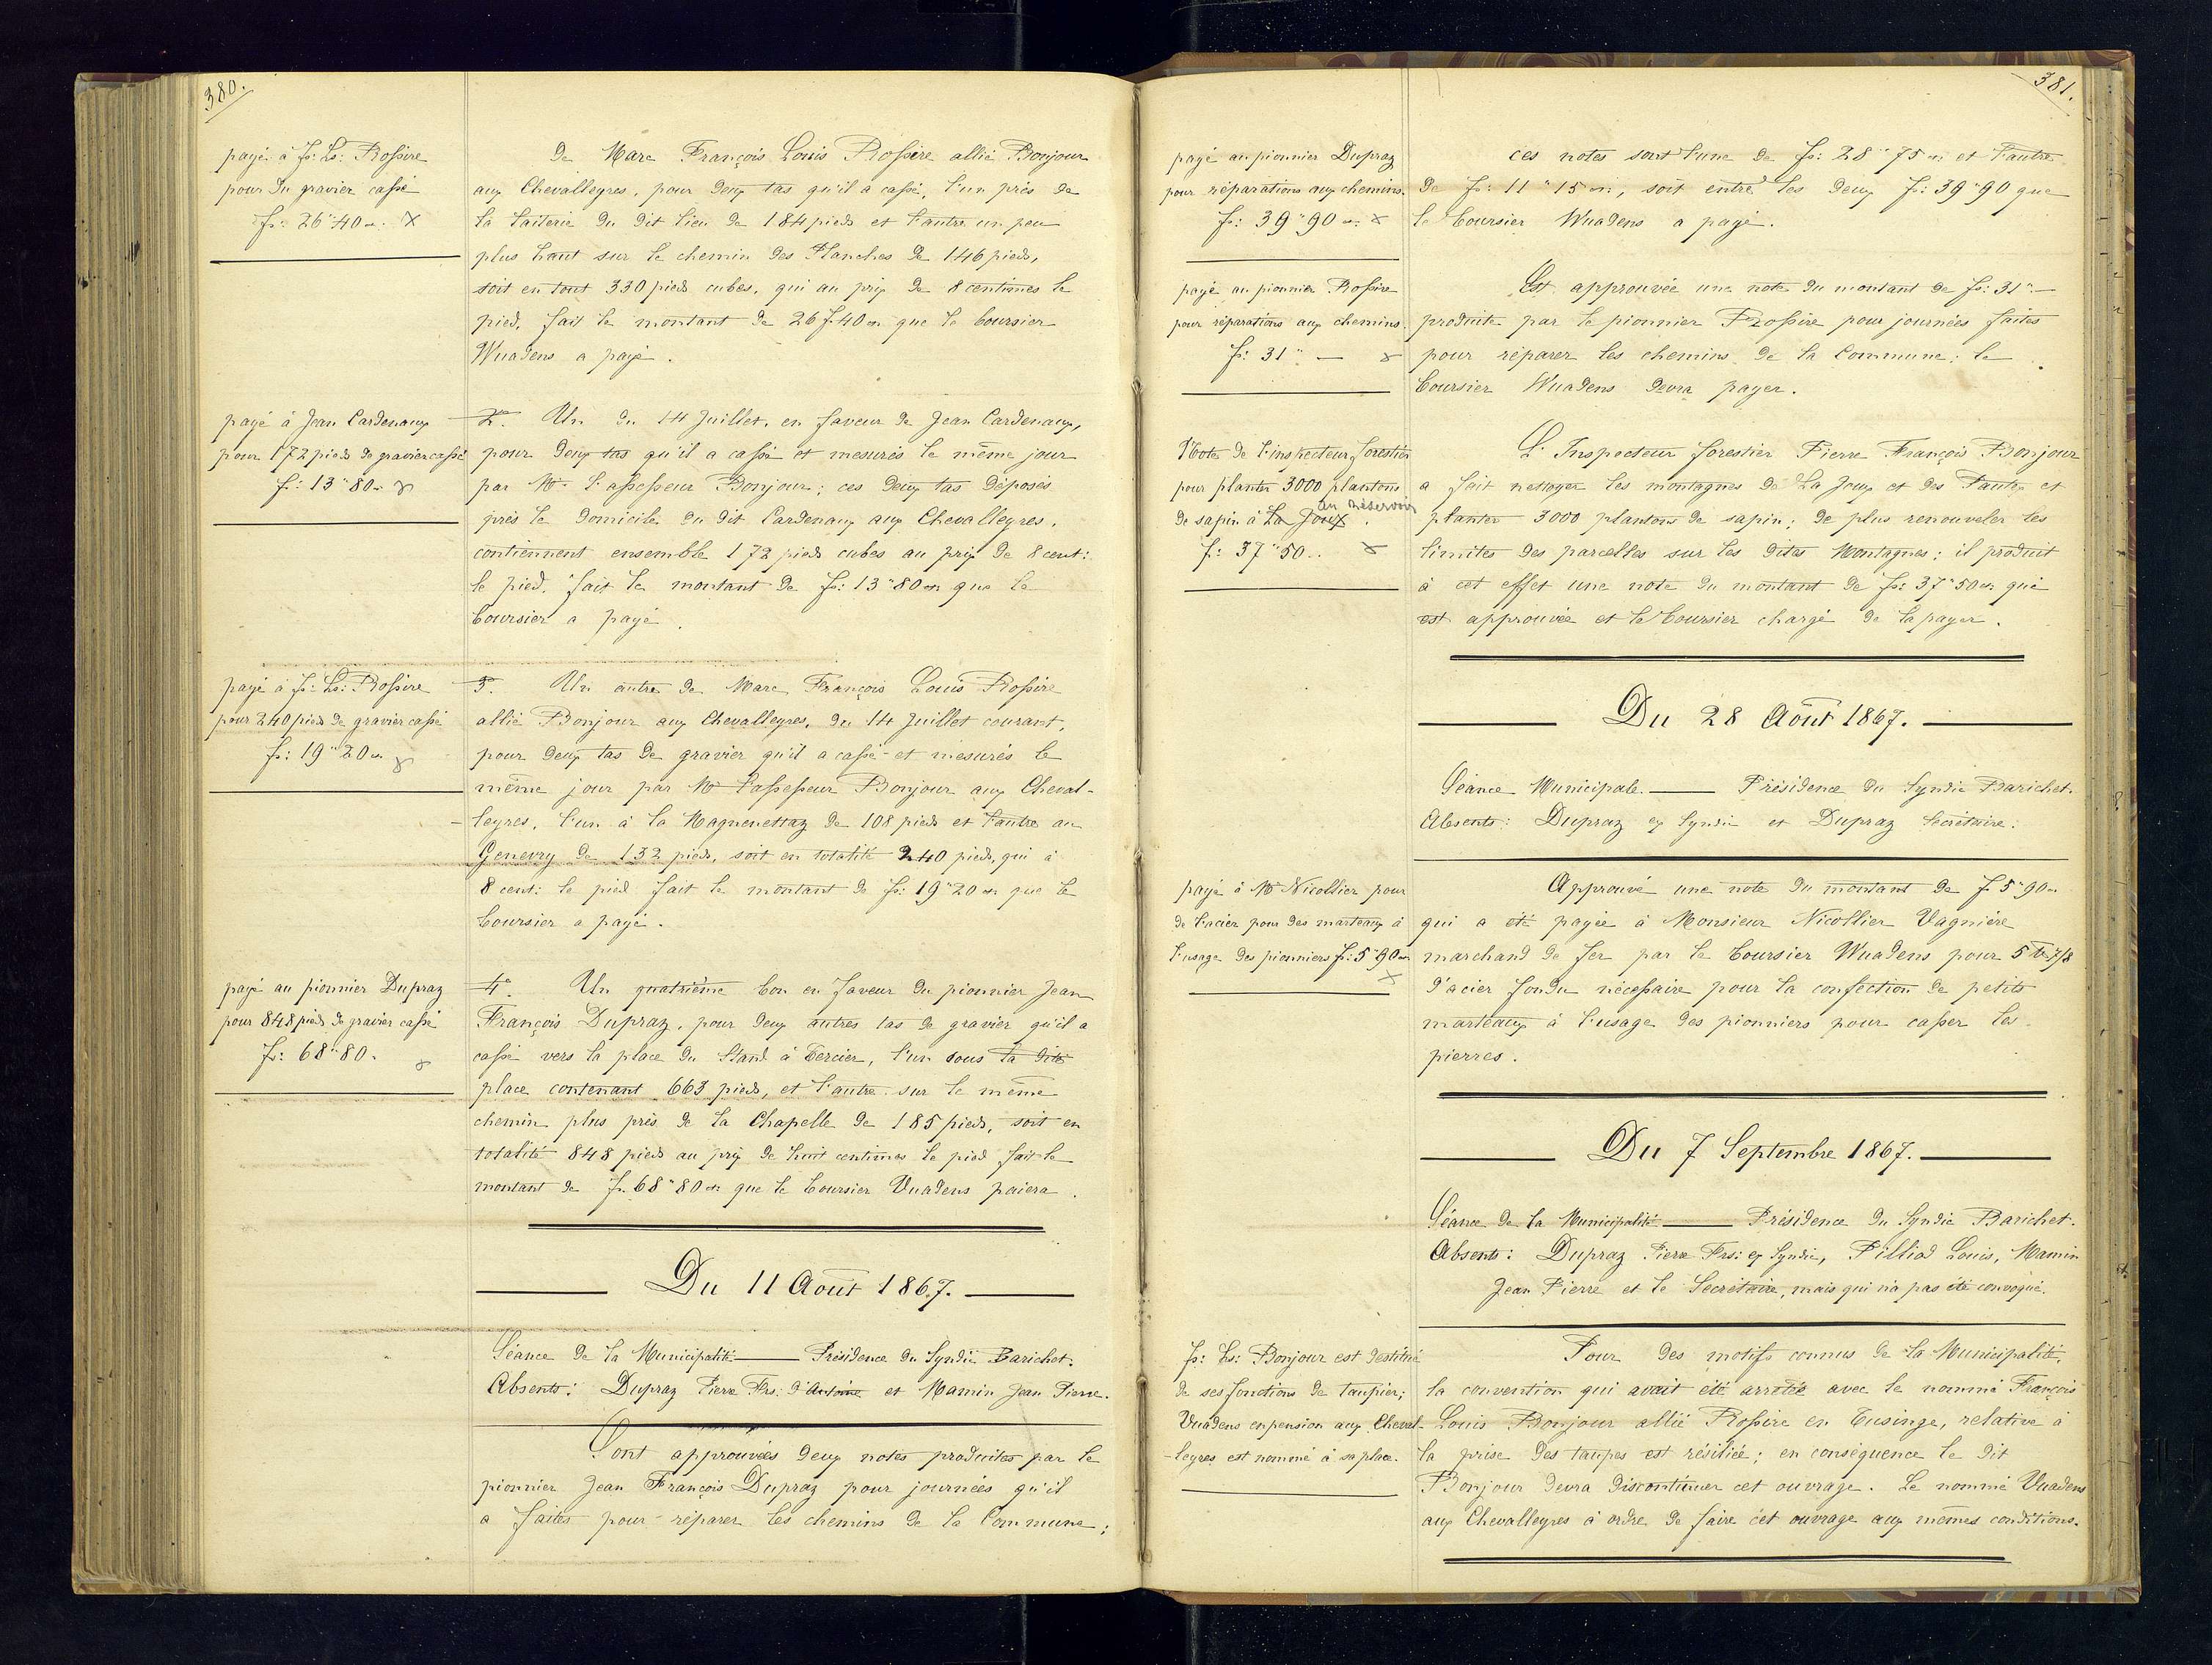 380.
payé à fs: Ls: Rossire
pour du gravier cassé
fs: 26"40 cs. X
De Marc François Louis Rossire allié Bonjour
aux Chevalleyres, pour deux tas qu'il a cassé, l'un près de
la laiterie du dit lieu de 184 pieds et l'autre un peu
plus haut sur le chemin des Planches de 146 pieds,
soit en tout 330 pieds cubes, qui au prix de 8 centimes le
pied, fait le montant de 26 f 40 cs que le boursier
Wuadens a payé.
payé à Jean Cardenaux
pour 172 pieds de gravier cassé
fs: 13"80 cs x
2°. Un du 14 Juillet, en faveur de Jean Cardenaux,
pour deux tas qu'il a cassé et mesurés le même jour
par Mr. l'assesseur Bonjour; ces deux tas déposés
près le domicile du dit Cardenaux aux Chevalleyres,
contiennent ensemble 172 pieds cubes au prix de 8 cent:
le pied, fait le montant de fs: 13"80 cs que le
boursier a payé.
payé à fs: Ls: Rossire
pour 240 pieds de gravier cassé
fs: 19"20 cs x
3°. Un autre de Marc François Louis Rossire
allié Bonjour aux Chevalleyres, du 14 Juillet courant,
pour deux tas de gravier qu'il a cassé et mesurés le
même jour par Mr l'assesseur Bonjour aux Cheval-
-leyres, l'un à la Maguenettaz de 108 pieds et l'autre au
Genevry de 132 pieds, soit en totalité 240 pieds, qui à
8 cent: le pied fait le montant de fs: 19"20 cs que le
boursier a payé.
payé au pionnier Dupraz
pour 848 pieds de gravier cassé
fs: 68"80. x
4°. Un quatrième bon en faveur du pionnier Jean
François Dupraz, pour deux autres tas de gravier qu'il a
cassé vers la place du Stand à Tercier, l'un sous la dite
place contenant 663 pieds, et l'autre sur le même
chemin plus près de la Chapelle de 185 pieds, soit en
totalité 848 pieds au prix de huit centimes le pied fait le
montant de fs. 68"80 cs que le boursier Vuadens paiera.
Du 11 Août 1867.
Séance de la Municipalité — Présidence du Syndic Barichet.
Absents: Dupraz Pierre Frs: d'Antoine et Mamin Jean Pierre.
Sont approuvées deux notes produites par le
pionnier Jean François Dupraz pour journées qu'il
a faites pour réparer les chemins de la Commune;
381.
payé au pionnier Dupraz
pour réparations aux chemins.
fs: 39"90 cs. x
ces notes sont l'une de fs: 28"75 cs et l'autre
de fs: 11"15 cs, soit entre les deux fs: 39"90 que
le boursier Wuadens a payé.
payé au pionnier Rossire
pour réparations aux chemins.
fs: 31" — x
Est approuvée une note du montant de fs: 31"—
produite par le pionnier Rossire pour journées faites
pour réparer les chemins de la Commune: le
boursier Wuadens devra payer.
Note de l'inspecteur forestier
pour planter 3000 plantons
au réservoir
de sapin à La Joux.
f: 37"50.. x
L'Inspecteur forestier Pierre François Bonjour
a fait nettoyer les montagnes de La Joux et des Pautex et
planter 3000 plantons de sapin; de plus renouveler les
limites des parcelles sur les dites Montagnes; il produit
à cet effet une note du montant de fs: 37"50 cs qui
est approuvée et le boursier chargé de la payer.
Du 28 Août 1867.
Séance Municipale. — Présidence du Syndic Barichet.
Absents: Dupraz ex Syndic et Dupraz Secrétaire:
payé à Mr Nicollier pour
de l'acier pour des marteaux à
l'usage des pionniers fs: 5"90 cs
x
Approuvé une note du montant de f 5"90 cs
qui a été payée à Monsieur Nicollier Vagnière
marchand de fer par le boursier Wuadens pour 5 lb 7/8
d'acier fondu nécessaire pour la confection de petits
marteaux à l'usage des pionniers pour casser les
pierres.
Du 7 Septembre 1867.
Séance de la Municipalité — Présidence du Syndic Barichet.
Absents: Dupraz Pierre Frs: ex Syndic, Pilliod Louis, Mamin
Jean Pierre et le Secrétaire, mais qui n'a pas été convoqué.
fs: Ls: Bonjour est destitué
de ses fonctions de taupier;
Vuadens en pension aux Cheval-
-leyres est nommé à sa place.
Pour des motifs connus de la Municipalité,
la convention qui avait été arrêtée avec le nommé François
Louis Bonjour allié Rossire en Tusinge, relative à
la prise des taupes est résiliée; en conséquence le dit
Bonjour devra discontinuer cet ouvrage. Le nommé Vuadens
aux Chevalleyres a ordre de faire cet ouvrage aux mêmes conditions.